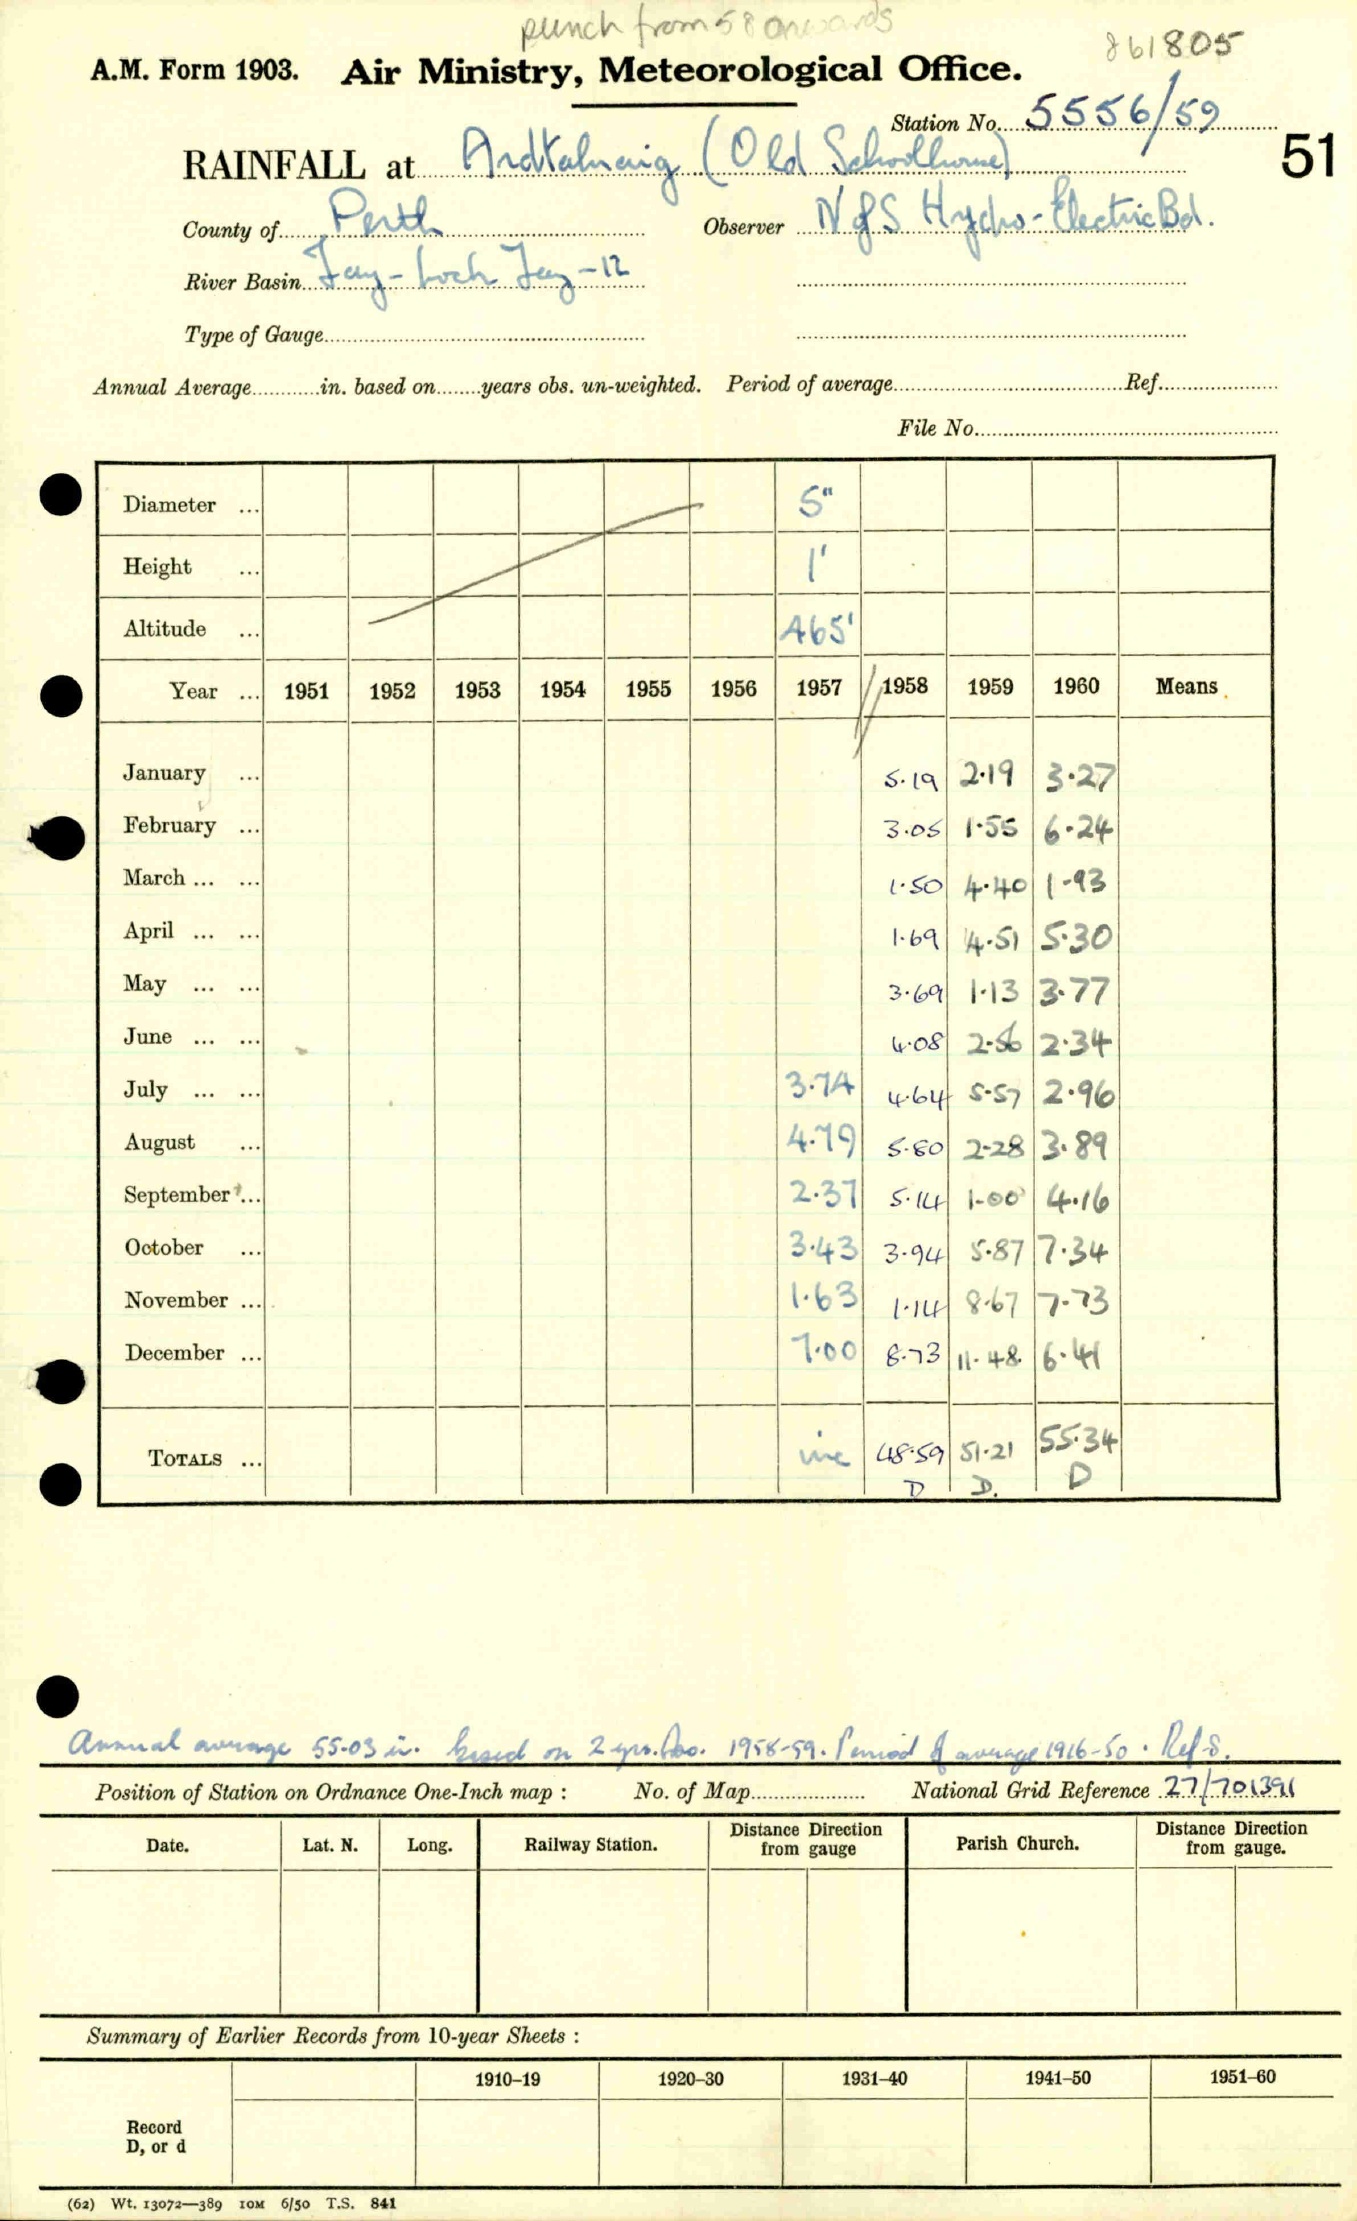 punch from 58 onwards
861805
A.M. Form 1903. Air Ministry, Meteorological Office.
Station No. 5556/59
RAINFALL at Ardtalnaig (Old Schoolhouse)
51
County of Perth Observer N of S Hydro-Electric Bd.
River Basin Tay - Loch Tay - 12
Type of Gauge
Annual Average in. based on years obs. un-weighted. Period of average Ref.
File No.
Diameter ... 5"
Height ... 1'
Altitude ... 465'
Year ... 1951 1952 1953 1954 1955 1956 1957 1958 1959 1960 Means
January ... 5.19 2.19 3.27
February ... 3.05 1.55 6.24
March ... ... 1.50 4.40 1.93
April ... ... 1.69 4.51 5.30
May ... ... 3.69 1.13 3.77
June ... ... 4.08 2.56 2.34
July ... ... 3.74 4.64 5.57 2.96
August ... 4.79 5.80 2.28 3.89
September ... 2.37 5.14 1.00 4.16
October ... 3.43 3.94 5.87 7.34
November ... 1.63 1.14 8.67 7.73
December ... 7.00 8.73 11.48 6.41
TOTALS ... inc 48.59 51.21 55.34
D D. D
Annual average 55.03 in. based on 2 yrs. obs. 1958-59. Period of average 1916-50. Ref S.
Position of Station on Ordnance One-Inch map : No. of Map National Grid Reference 27/701391
Date. Lat. N. Long. Railway Station. Distance from Direction gauge Parish Church. Distance from Direction gauge.
Summary of Earlier Records from 10-year Sheets :
1910–19 1920–30 1931–40 1941–50 1951–60
Record
D, or d
(62) Wt. 13072—389 10M 6/50 T.S. 841